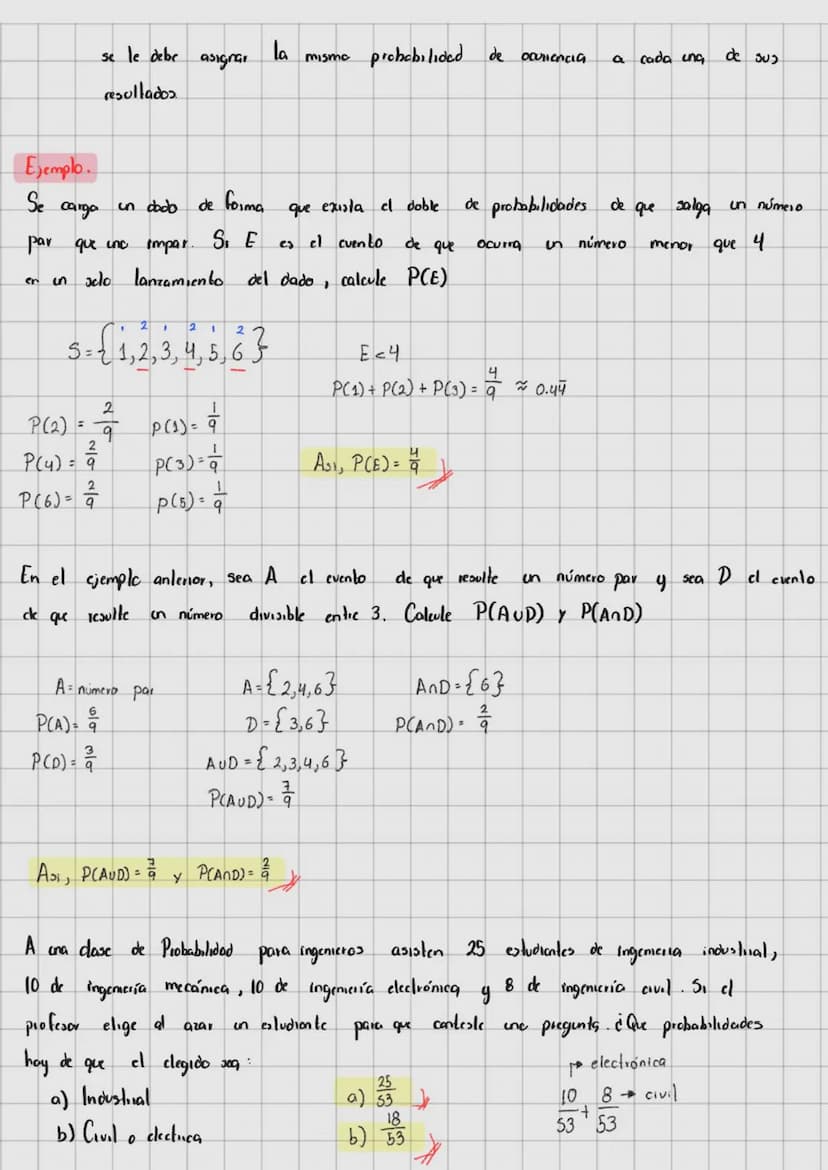 se le debe asignar la misma probabilidad de ocurrencia a cada una de sus
resultados
Ejemplo.
Se carga un dado de forma que exista el doble de probabilidades de que salga un número
par que uno impar. Si E es el evento de que ocurra un número menor que 4
en un solo lanzamiento del dado, calcule P(E)
1 2 1 2 1 2
S={1,2,3,4,5,6}
E<4
P(1)+P(2)+P(3)=4/9 ≈ 0.44
P(2)=2/9 p(1)=1/9
P(4)=2/9 p(3)=1/9
P(6)=2/9 p(5)=1/9
Asi, P(E)=4/9
En el ejemplo anterior, sea A el evento de que resulte un número par y sea D el evento
de que resulte un número divisible entre 3. Calcule P(A∪D) y P(A∩D)
A=número par A={2,4,6} A∩D={6}
P(A)=6/9 D={3,6} P(A∩D)=2/9
P(D)=3/9 A∪D={2,3,4,6}
P(A∪D)=7/9
Asi, P(A∪D)=7/9 y P(A∩D)=2/9
A una clase de Probabilidad para ingenieros asisten 25 estudiantes de ingenieria industrial,
10 de ingeniería mecánica, 10 de ingeniería electrónica y 8 de ingeniería civil. Si el
profesor elige al azar un estudiante para que conteste una pregunta. ¿Que probabilidades
hay de que el elegido sea:
→ electrónica
a) Industrial a) 25/53 10/53 + 8/53 → civil
b) Civil o electrica b) 18/53